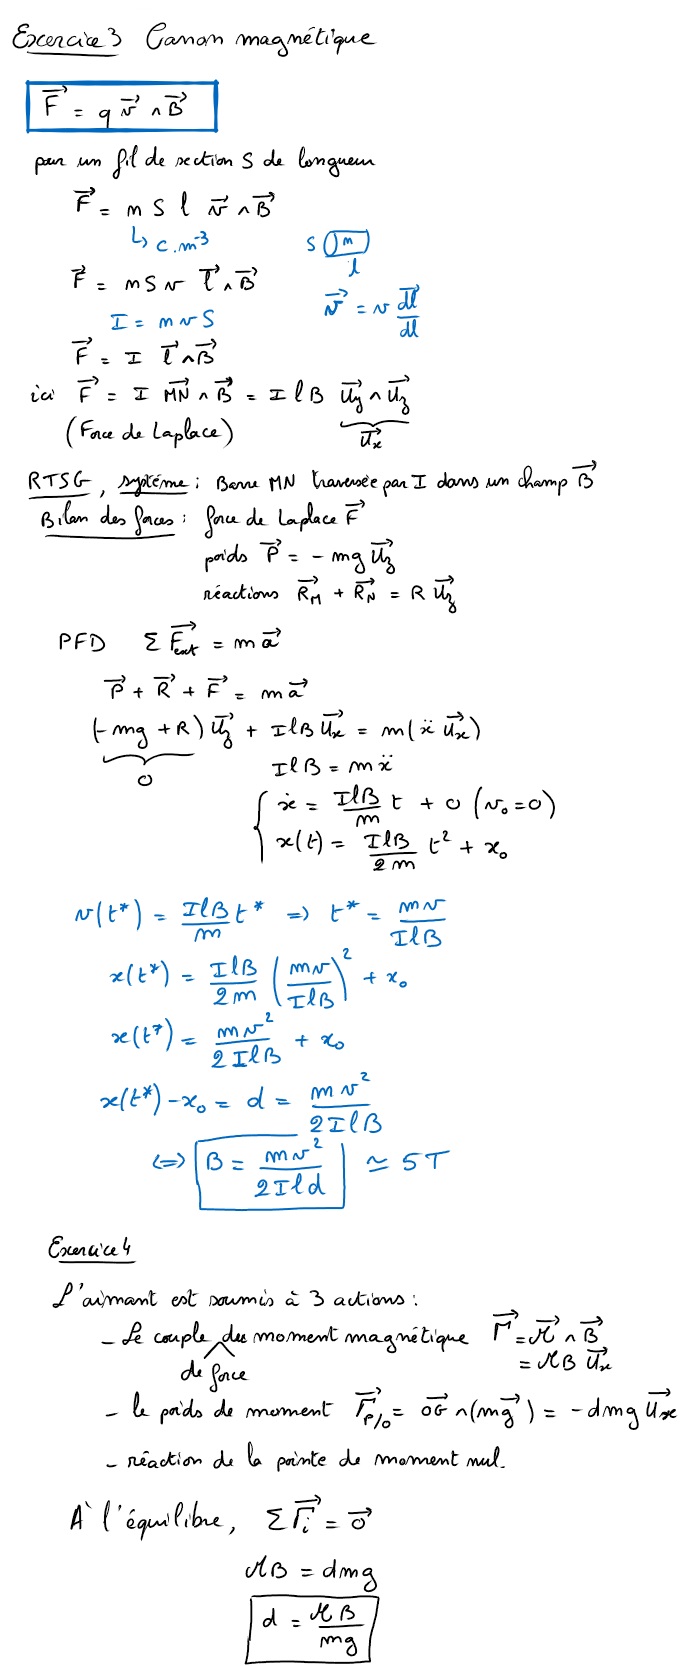 Exercice 3 Canon magnétique
F⃗ = q v⃗ ∧ B⃗
pour un fil de section S de longueur
F⃗ = m S l v⃗ ∧ B⃗
↳ C.m⁻³
S m
l
F⃗ = m S v l⃗ ∧ B⃗
v⃗ = v dl⃗/dl
I = m v S
F⃗ = I l⃗ ∧ B⃗
ici F⃗ = I MN⃗ ∧ B⃗ = I l B u⃗y ∧ u⃗z
(Force de Laplace) u⃗x
RTSG, système : Barre MN traversée par I dans un champ B⃗
Bilan des forces : force de Laplace F⃗
poids P⃗ = - mg u⃗z
réactions R⃗M + R⃗N = R u⃗z
PFD Σ F⃗ext = m a⃗
P⃗ + R⃗ + F⃗ = m a⃗
(- mg + R) u⃗z + I l B u⃗x = m(ẍ u⃗x)
0
I l B = m ẍ
ẋ = IlB/m t + 0 (v₀=0)
x(t) = IlB/2m t² + x₀
v(t*) = IlB/m t* => t* = mv/IlB
x(t*) = IlB/2m (mv/IlB)² + x₀
x(t*) = mv²/2IlB + x₀
x(t*) - x₀ = d = mv²/2IlB
<=> B = mv²/2Ild ≃ 5T
Exercice 4
L'aimant est soumis à 3 actions :
- Le couple du moment magnétique Γ⃗ = ℳ⃗ ∧ B⃗
de force
= ℳB u⃗x
- le poids de moment Γ⃗P/O = OG⃗ ∧ (mg⃗) = - dmg u⃗x
- réaction de la pointe de moment nul.
A' l'équilibre, Σ Γ⃗i = 0⃗
ℳB = dmg
d = ℳB/mg